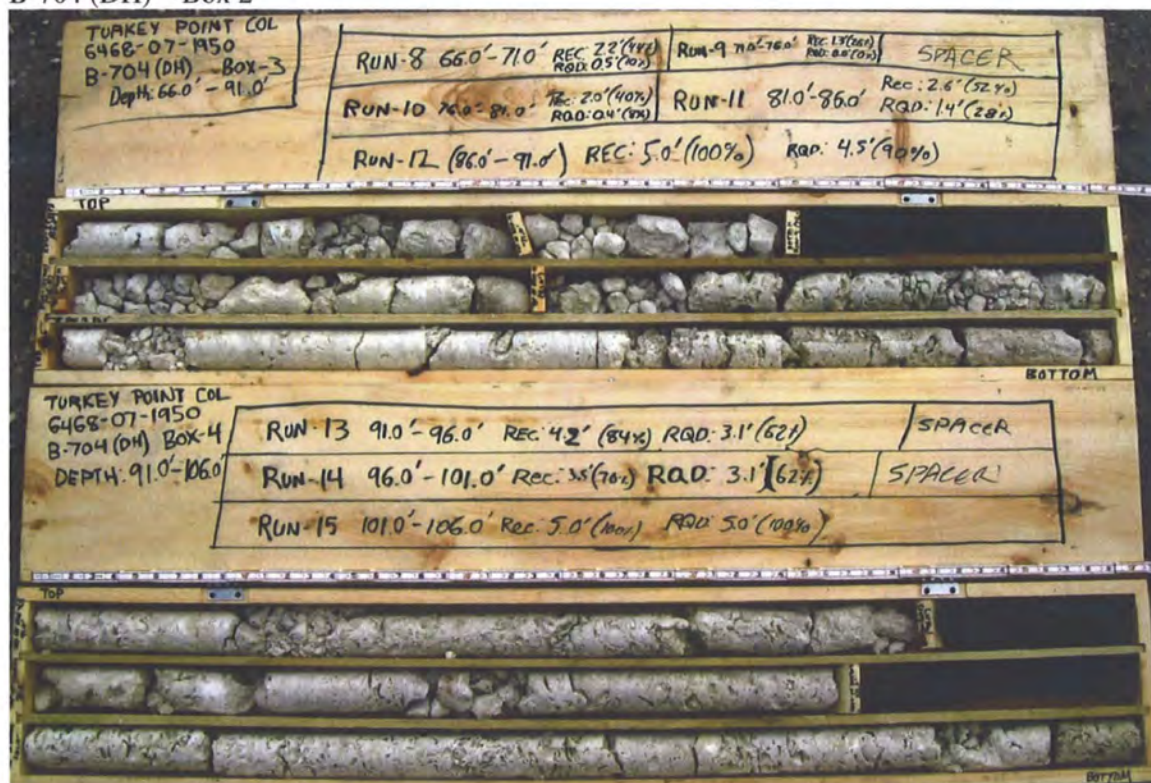 B-704 (DH) – Box 2
TURKEY POINT COL
6468-07-1950
B-704 (DH) BOX-3
Depth: 66.0' – 91.0'
RUN-8 66.0'–71.0' REC 2.2' (44%)
RQD: 0.5' (10%)
RUN-9 71.0'-76.0' REC: 1.3' (26%)
RQD: 0.0' (0%)
SPACER
RUN-10 76.0'-81.0' Rec: 2.0' (40%)
RQD: 0.4' (8%)
RUN-11 81.0'-86.0' Rec: 2.6' (52%)
RQD: 1.4' (28%)
RUN-12 (86.0'-91.0') REC: 5.0' (100%) RQD: 4.5' (90%)
TOP
BOTTOM
TURKEY POINT COL
6468-07-1950
B-704 (DH) BOX-4
DEPTH: 91.0'-106.0'
RUN-13 91.0'-96.0' REC: 4.2' (84%) RQD: 3.1' (62%)
SPACER
RUN-14 96.0'-101.0' Rec: 3.5' (70%) RQD: 3.1' (62%)
SPACER
RUN-15 101.0'-106.0' Rec: 5.0' (100%) RQD: 5.0' (100%)
TOP
BOTTOM